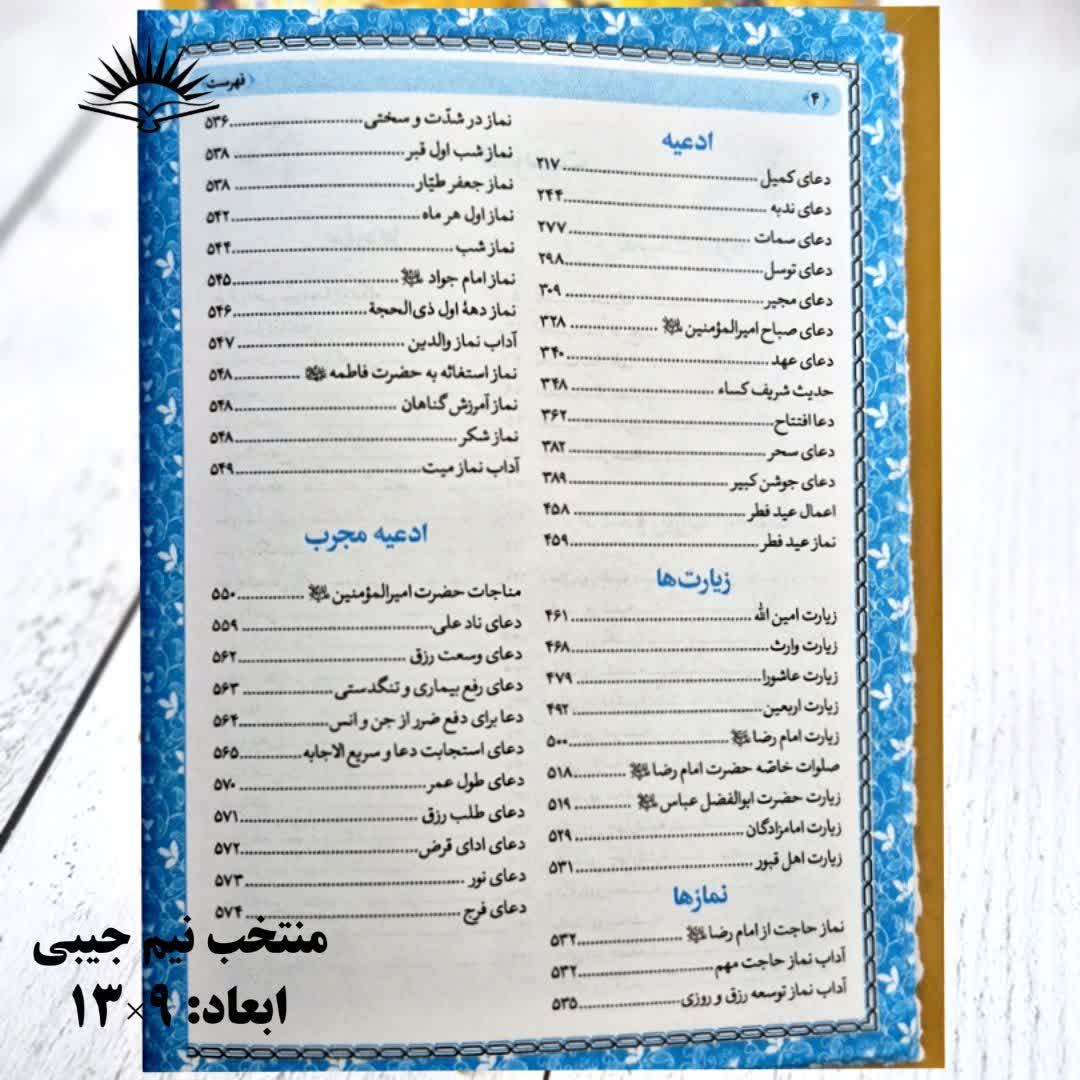 ﴿ ۴ ﴾
فهرست
ادعیه
دعای کمیل ........ ۲۱۷
دعای ندبه ........ ۲۴۴
دعای سمات ........ ۲۷۷
دعای توسل ........ ۲۹۸
دعای مجیر ........ ۳۰۹
دعای صباح امیرالمؤمنین ........ ۳۲۸
دعای عهد ........ ۳۴۰
حدیث شریف کساء ........ ۳۴۸
دعا افتتاح ........ ۳۶۲
دعای سحر ........ ۳۸۲
دعای جوشن کبیر ........ ۳۸۹
اعمال عید فطر ........ ۴۵۸
نماز عید فطر ........ ۴۵۹
زیارت‌ها
زیارت امین الله ........ ۴۶۱
زیارت وارث ........ ۴۶۸
زیارت عاشورا ........ ۴۷۹
زیارت اربعین ........ ۴۹۲
زیارت امام رضا ........ ۵۰۰
صلوات خاصّه حضرت امام رضا ........ ۵۱۸
زیارت حضرت ابوالفضل عباس ........ ۵۱۹
زیارت امامزادگان ........ ۵۲۹
زیارت اهل قبور ........ ۵۳۱
نمازها
نماز حاجت از امام رضا ........ ۵۳۲
آداب نماز حاجت مهم ........ ۵۳۲
آداب نماز توسعه رزق و روزی ........ ۵۳۵
نماز در شدّت و سختی ........ ۵۳۶
نماز شب اول قبر ........ ۵۳۸
نماز جعفر طیّار ........ ۵۳۸
نماز اول هر ماه ........ ۵۴۲
نماز شب ........ ۵۴۴
نماز امام جواد ........ ۵۴۵
نماز دههٔ اول ذی‌الحجة ........ ۵۴۶
آداب نماز والدین ........ ۵۴۷
نماز استغاثه به حضرت فاطمه ........ ۵۴۸
نماز آمرزش گناهان ........ ۵۴۸
نماز شکر ........ ۵۴۸
آداب نماز میت ........ ۵۴۹
ادعیه مجرب
مناجات حضرت امیرالمؤمنین ........ ۵۵۰
دعای ناد علی ........ ۵۵۹
دعای وسعت رزق ........ ۵۶۲
دعای رفع بیماری و تنگدستی ........ ۵۶۳
دعا برای دفع ضرر از جن و انس ........ ۵۶۴
دعای استجابت دعا و سریع الاجابه ........ ۵۶۵
دعای طول عمر ........ ۵۷۰
دعای طلب رزق ........ ۵۷۱
دعای ادای قرض ........ ۵۷۲
دعای نور ........ ۵۷۳
دعای فرج ........ ۵۷۴
منتخب نیم جیبی
ابعاد: ۹×۱۳